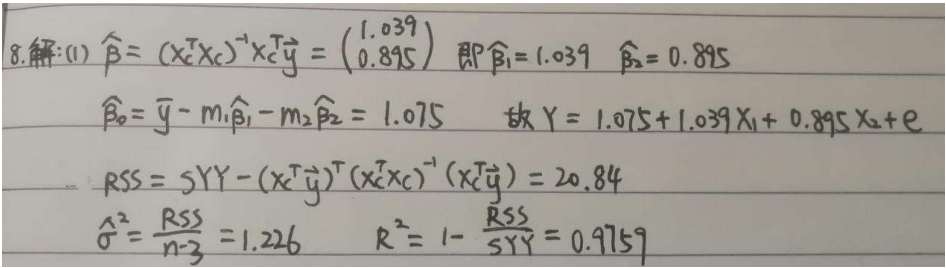 8.解:(1) β̂ = (Xc^T Xc)^{-1} Xc^T y⃗ = (1.039 0.895) 即 β̂₁ = 1.039 β̂₂ = 0.895
β̂₀ = ȳ - m₁β̂₁ - m₂β̂₂ = 1.075 故 Y = 1.075 + 1.039X₁ + 0.895X₂ + e
RSS = SYY - (Xc^T y⃗)^T (Xc^T Xc)^{-1} (Xc^T y⃗) = 20.84
σ̂² = RSS/(n-3) = 1.226 R² = 1 - RSS/SYY = 0.9759